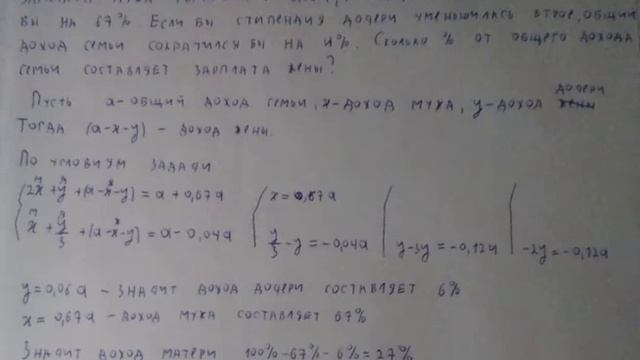 бы на 67%. Если бы стипендия дочери уменьшилась втрое, общий
доход семьи сократился бы на 4%. Сколько % от общего дохода
семьи составляет зарплата жены?
Пусть a - общий доход семьи, x - доход мужа, y - доход дочери
Тогда (a-x-y) - доход жены.
По условиям задачи
2x + y + (a-x-y) = a + 0,67a
x = 0,67a
x + y/3 + (a-x-y) = a - 0,04a
y/3 - y = -0,04a
y-3y = -0,12a
-2y = -0,12a
y = 0,06a - значит доход дочери составляет 6%
x = 0,67a - доход мужа составляет 67%
Значит доход матери 100% - 67% - 6% = 27%